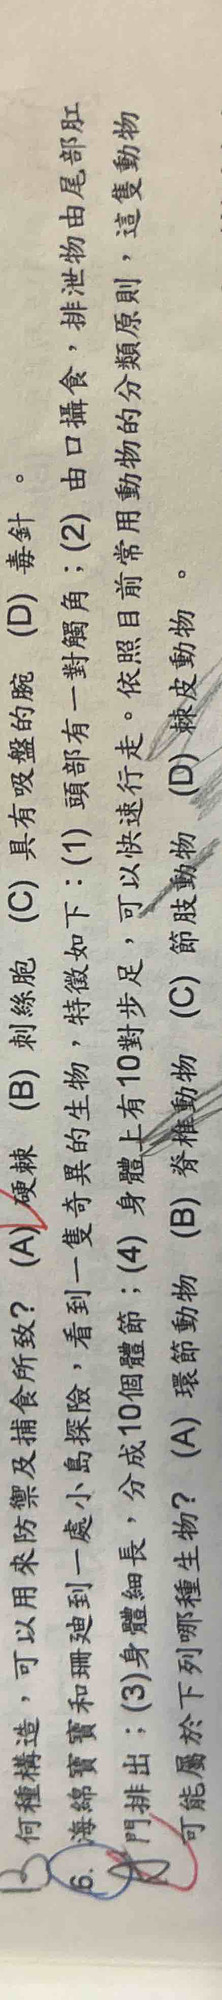 何種構造，可以用來防禦及捕食所致？ (A) 硬棘 (B) 刺絲胞 (C) 具有吸盤的腕 (D) 毒針。
B
6. 海綿寶寶和珊迪到一處小島探險，看到一隻奇異的生物，特徵如下：(1) 頭部有一對觸角；(2) 由口攝食，排泄物由尾部肛
門排出；(3)身體細長，分成10個體節；(4) 身體上有10對步足，可以快速行走。依照目前常用動物的分類原則，這隻動物
可能屬於下列哪種生物？ (A) 環節動物 (B) 脊椎動物 (C) 節肢動物 (D) 棘皮動物。